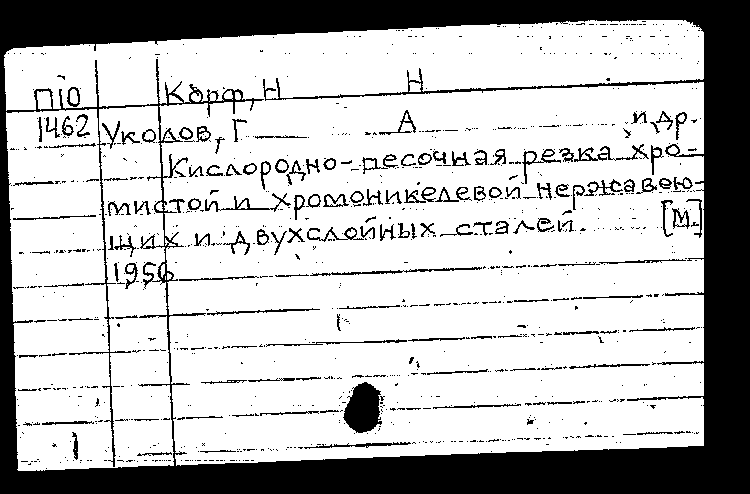 ПЮ Корф, Н Н
1462 Уколов, Г А и др.
Кислородно-песочная резка хро-
мистой и хромоникелевой нержавею-
щих и двухслойных сталей. [М.]
1956